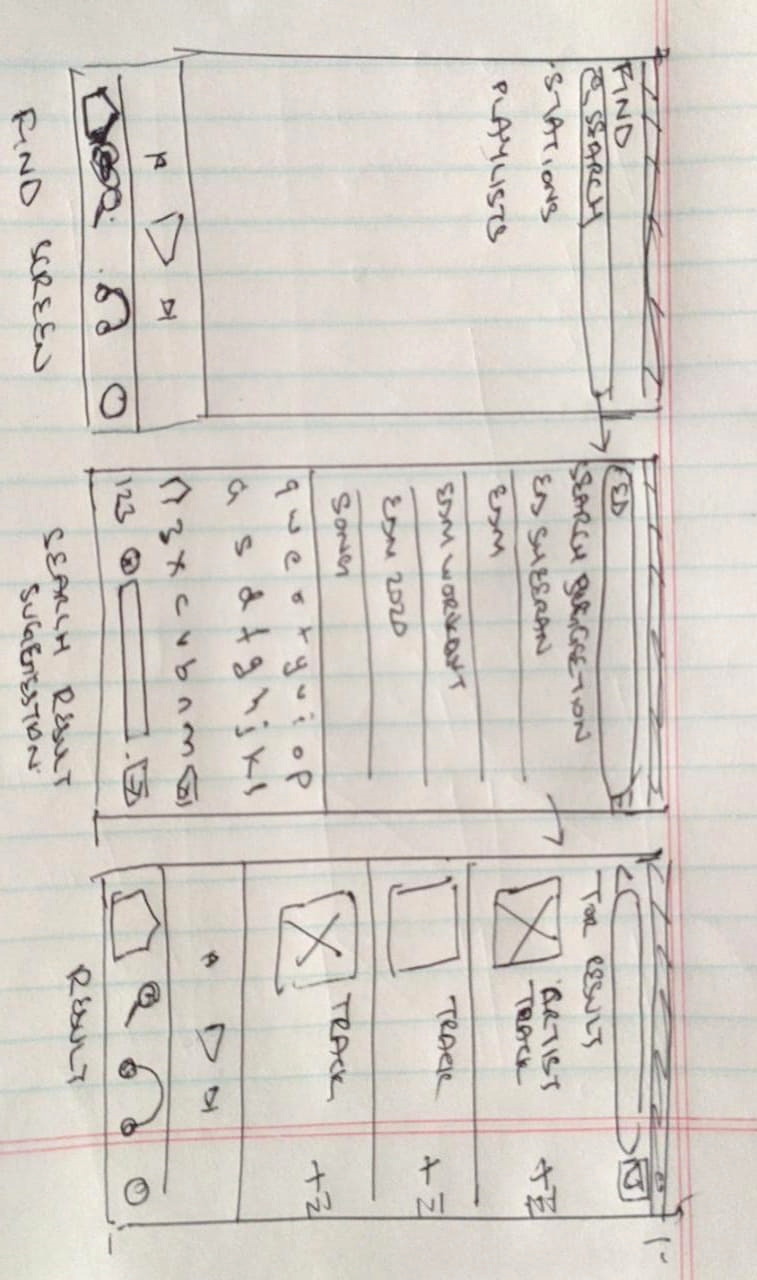 FIND
SEARCH
STATIONS
PLAYLISTS
FIND SCREEN
ED
SEARCH
ED SHEERAN
EDM
EDM WORKOUT
EDM 2020
SONGS
q w e r t y u i o p
a s d f g h j k l
z x c v b n m
123
SEARCH RESULT
SUGGESTION
TOP RESULT
ARTIST
TRACK
+
TRACK
+
TRACK
+
RESULT